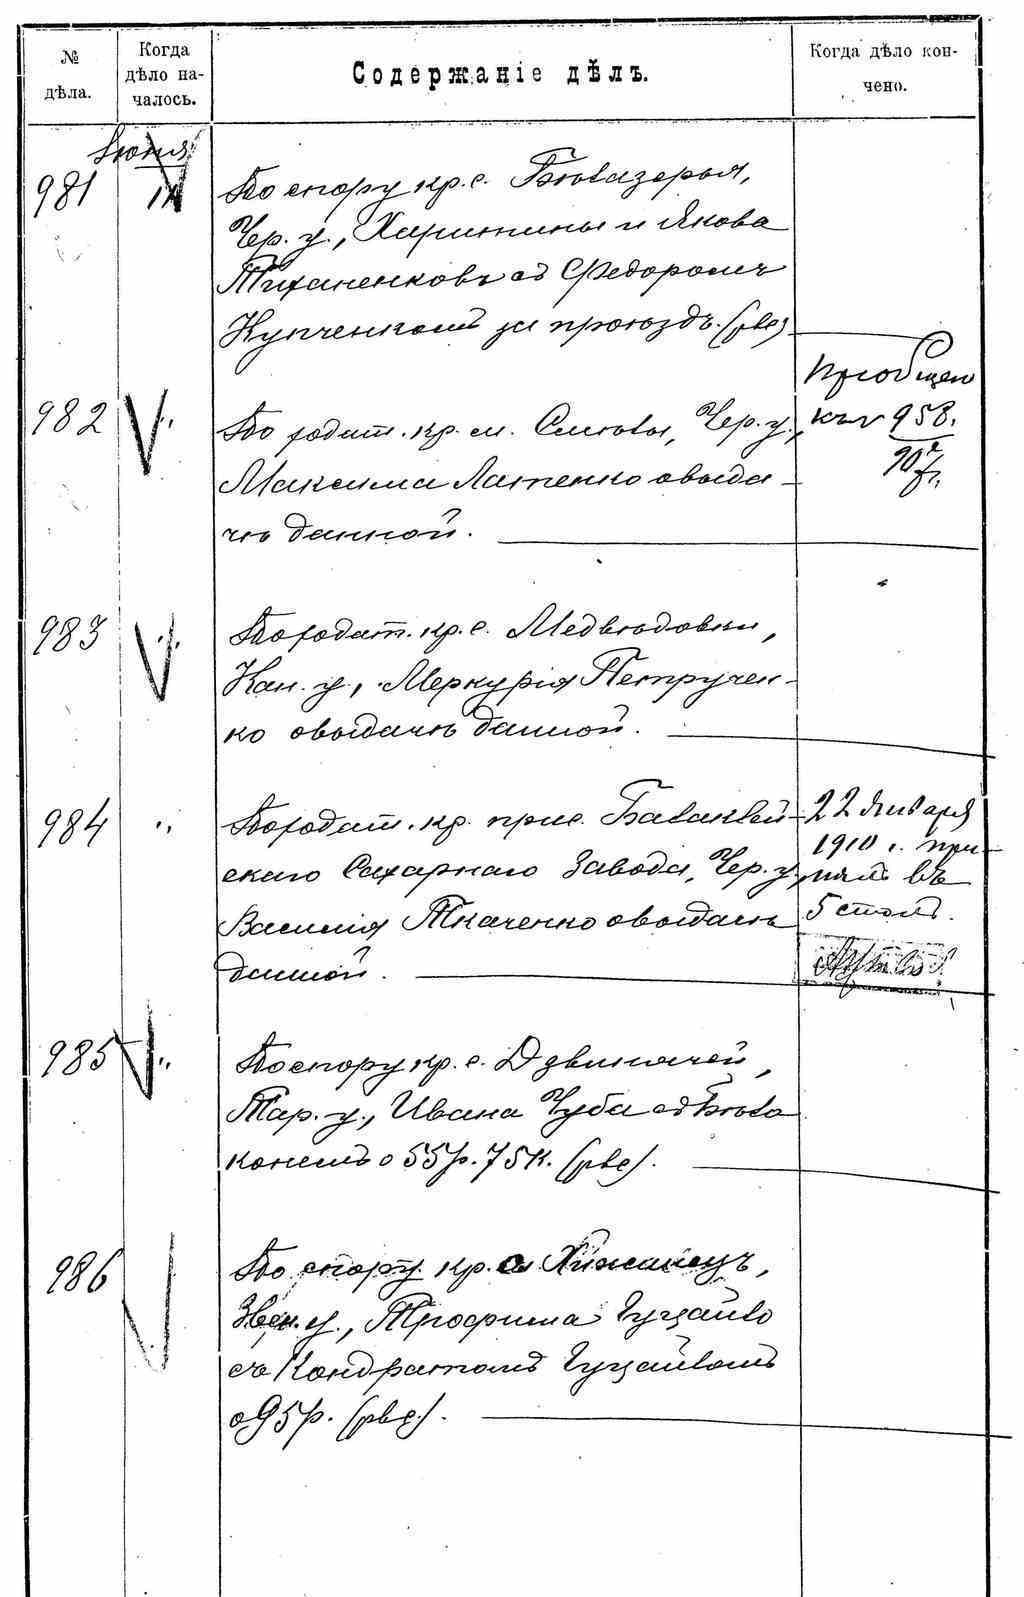 № дѣла.
Когда дѣло на-
чалось.
Содержаніе дѣлъ.
Когда дѣло кон-
чено.
Іюня
981
По спору кр. с. Бѣлазерья,
Чер. у., Харитины и Якова
Тиханенковъ съ Федоромъ
Купченкомъ за проѣздъ. (рве)
982 "
По ходат. кр. м. Смѣлы, Чер. у.,
Максима Латенко о выда-
чѣ данной.
Пріобщено
къ 958.
907 г.
983 "
По ходат. кр. с. Медвѣдовки,
Кан. у., Меркурія Петручен-
ко о выдачѣ данной.
984 "
По ходат. кр. прис.
скаго Сахарнаго Завода, Чер. у.,
Василія Ткаченко о выдачѣ
данной.
22 Января
1910 г. при-
нялъ въ
5 столъ.
985 "
По спору кр. с. Дзвенячей,
Тар. у., Ивана Чуба съ Бѣло
конемъ о 55 р. 75 к. (рве).
986
По спору кр. с. Хижинецъ,
Звен. у., Трофима Гуцайло
съ Кондратомъ Гуцайломъ
о 95 р. (рве).